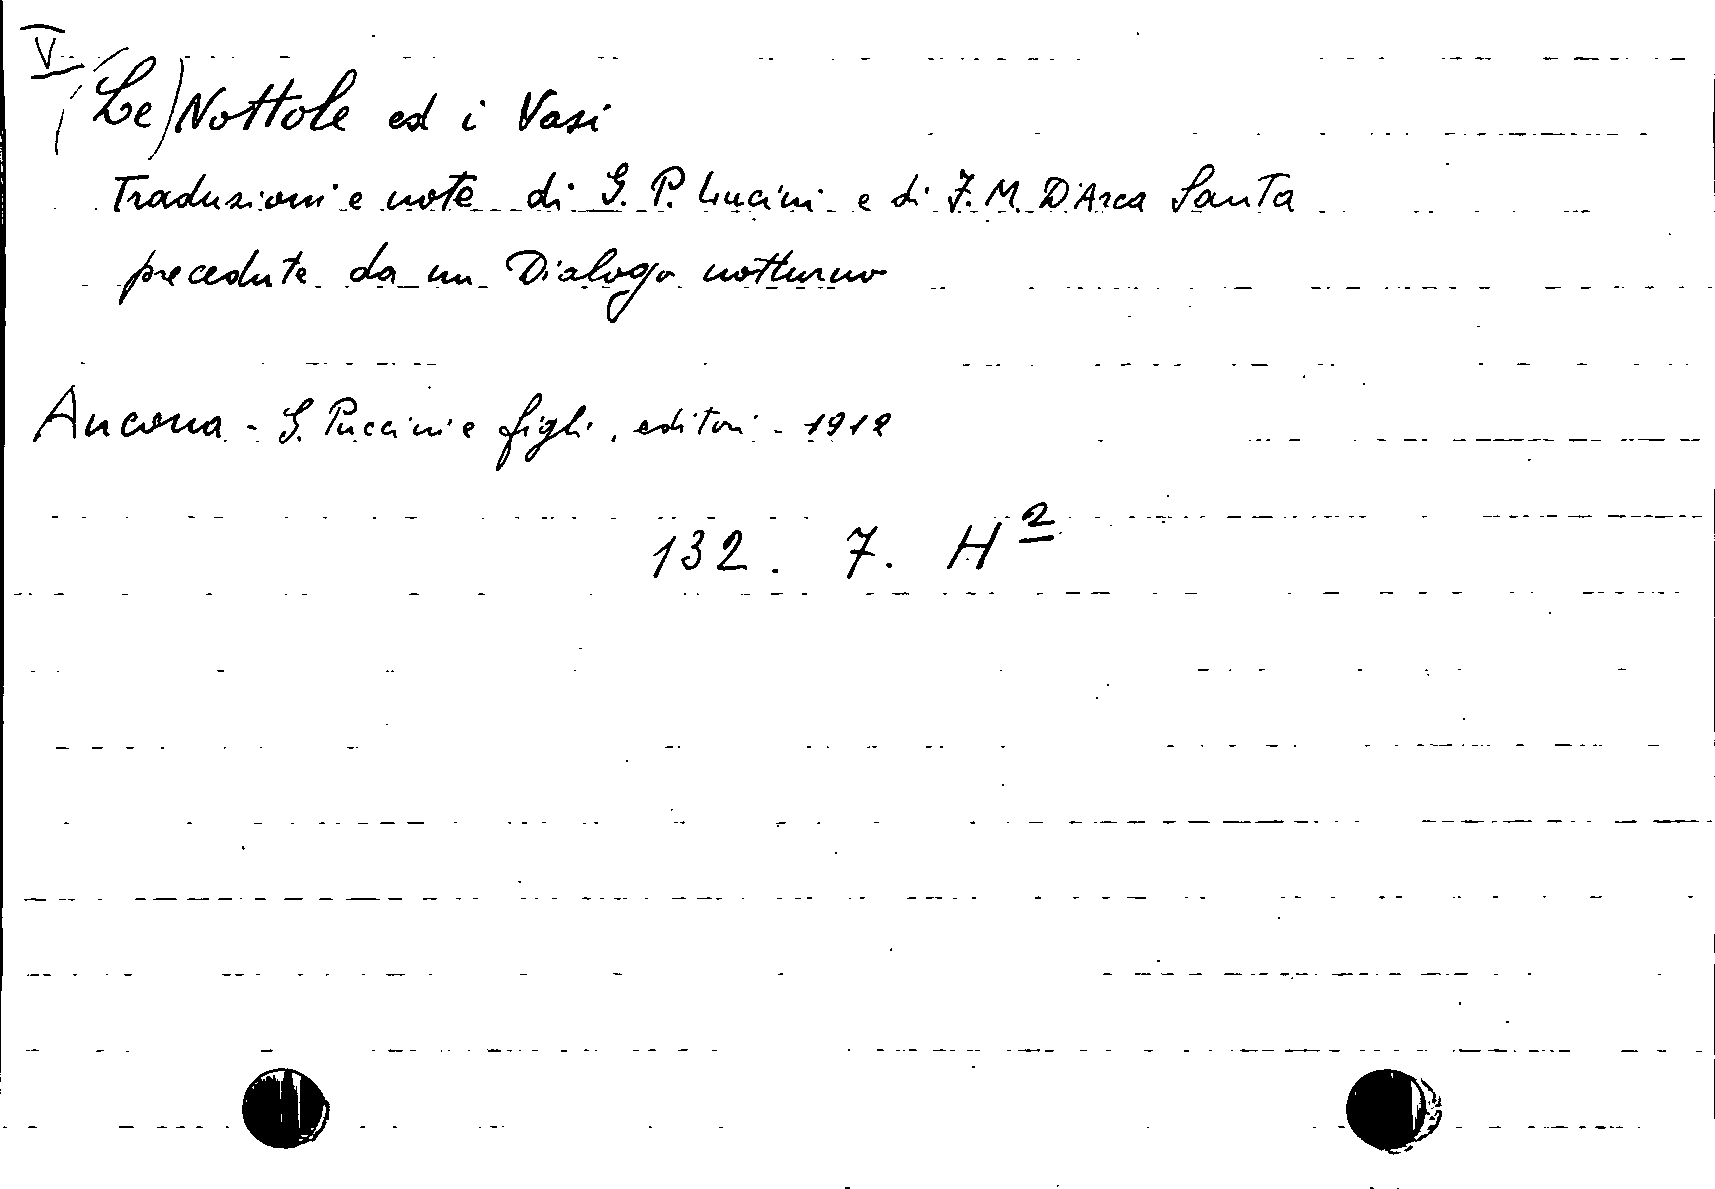 V
(Le) Nottole ed i Vasi
Traduzioni e note di G. P. Lucini e di F. M. D'Arca Santa
precedute da un Dialogo notturno
Ancona - G. Puccini e figli, editori - 1912
132. 7. H 2